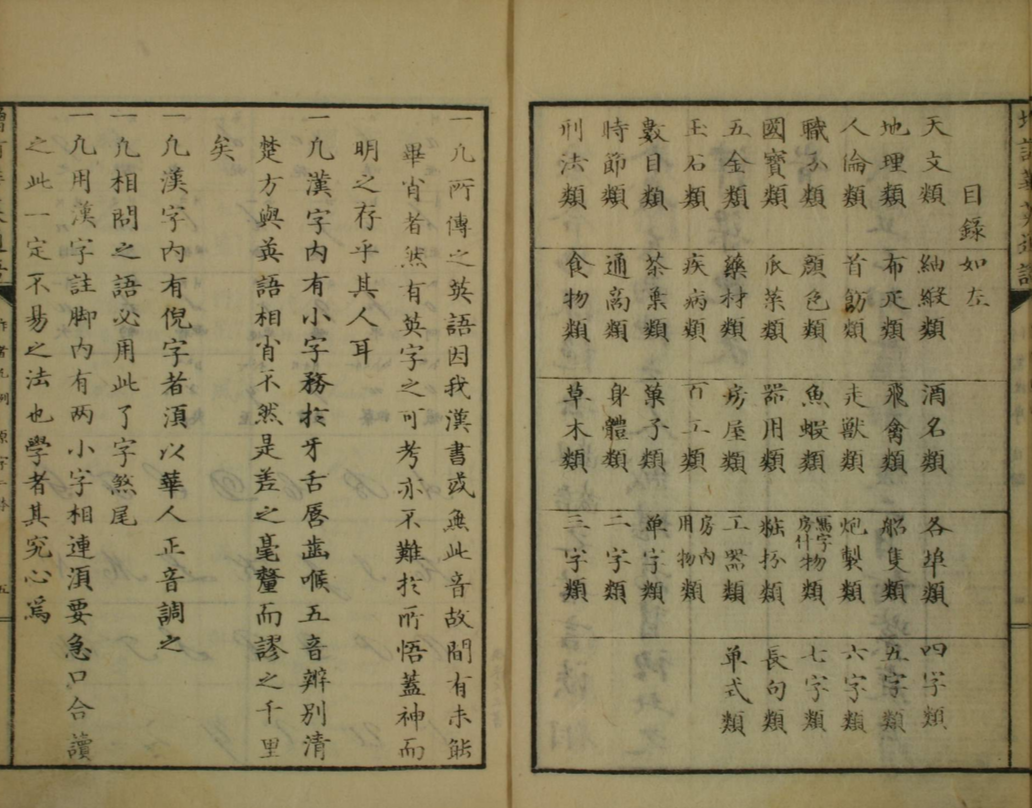 目錄如左
天文類
地理類
人倫類
職分類
國寶類
五金類
玉石類
數目類
時節類
刑法類
紬緞類
布疋類
首飾類
顏色類
瓜菜類
藥材類
疾病類
茶葉類
通商類
食物類
酒名類
飛禽類
走獸類
魚蝦類
器用類
房屋類
百工類
菓子類
身體類
草木類
各埠類
船隻類
炮製類
寫字房什物類
粧扮類
工器類
房內用物類
單字類
二字類
三字類
四字類
五字類
六字類
七字類
長句類
單式類
一凡所傳之英語因我漢書或無此音故間有未能
畢肖者然有英字之可考亦不難於所悟蓋神而
明之存乎其人耳
一凡漢字內有小字務於牙舌唇齒喉五音辨別清
楚方與英語相肖不然是差之毫釐而謬之千里
矣
一凡漢字內有倪字者須以華人正音調之
一凡相問之語必用此了字煞尾
一凡用漢字註脚內有两小字相連須要急口合讀
之此一定不易之法也學者其究心焉